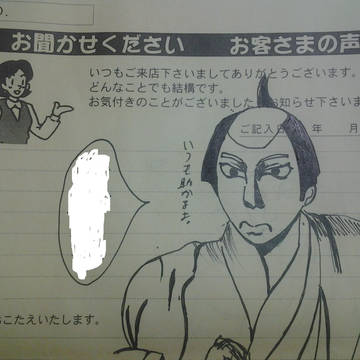 お聞かせください お客さまの声
いつもご来店下さいましてありがとうございます。
どんなことでも結構です。
お気付きのことがございました
お知らせ下さいま
ご記入日 年 月
いつも助かるよ。
こたえいたします。